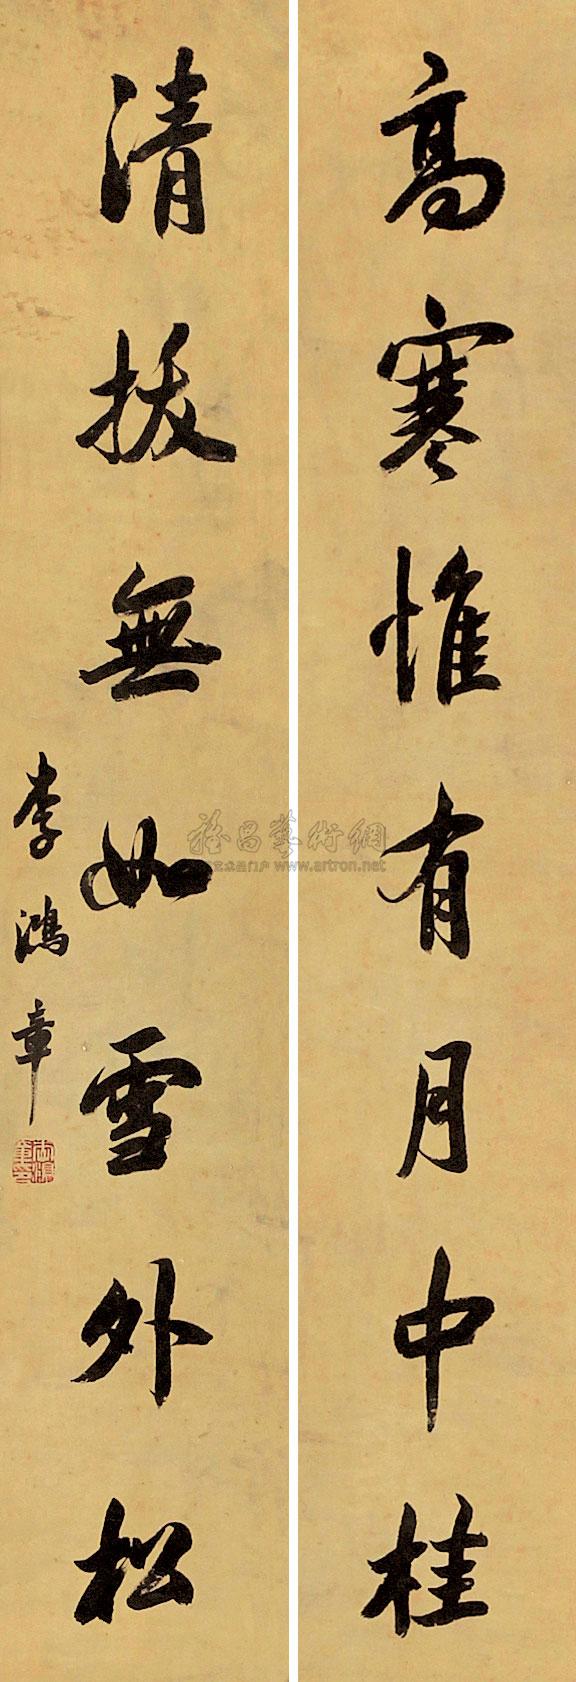 高寒惟有月中桂
清拔無如雪外松
李鴻章
雅昌藝術網
艺术品门户 www.artron.net